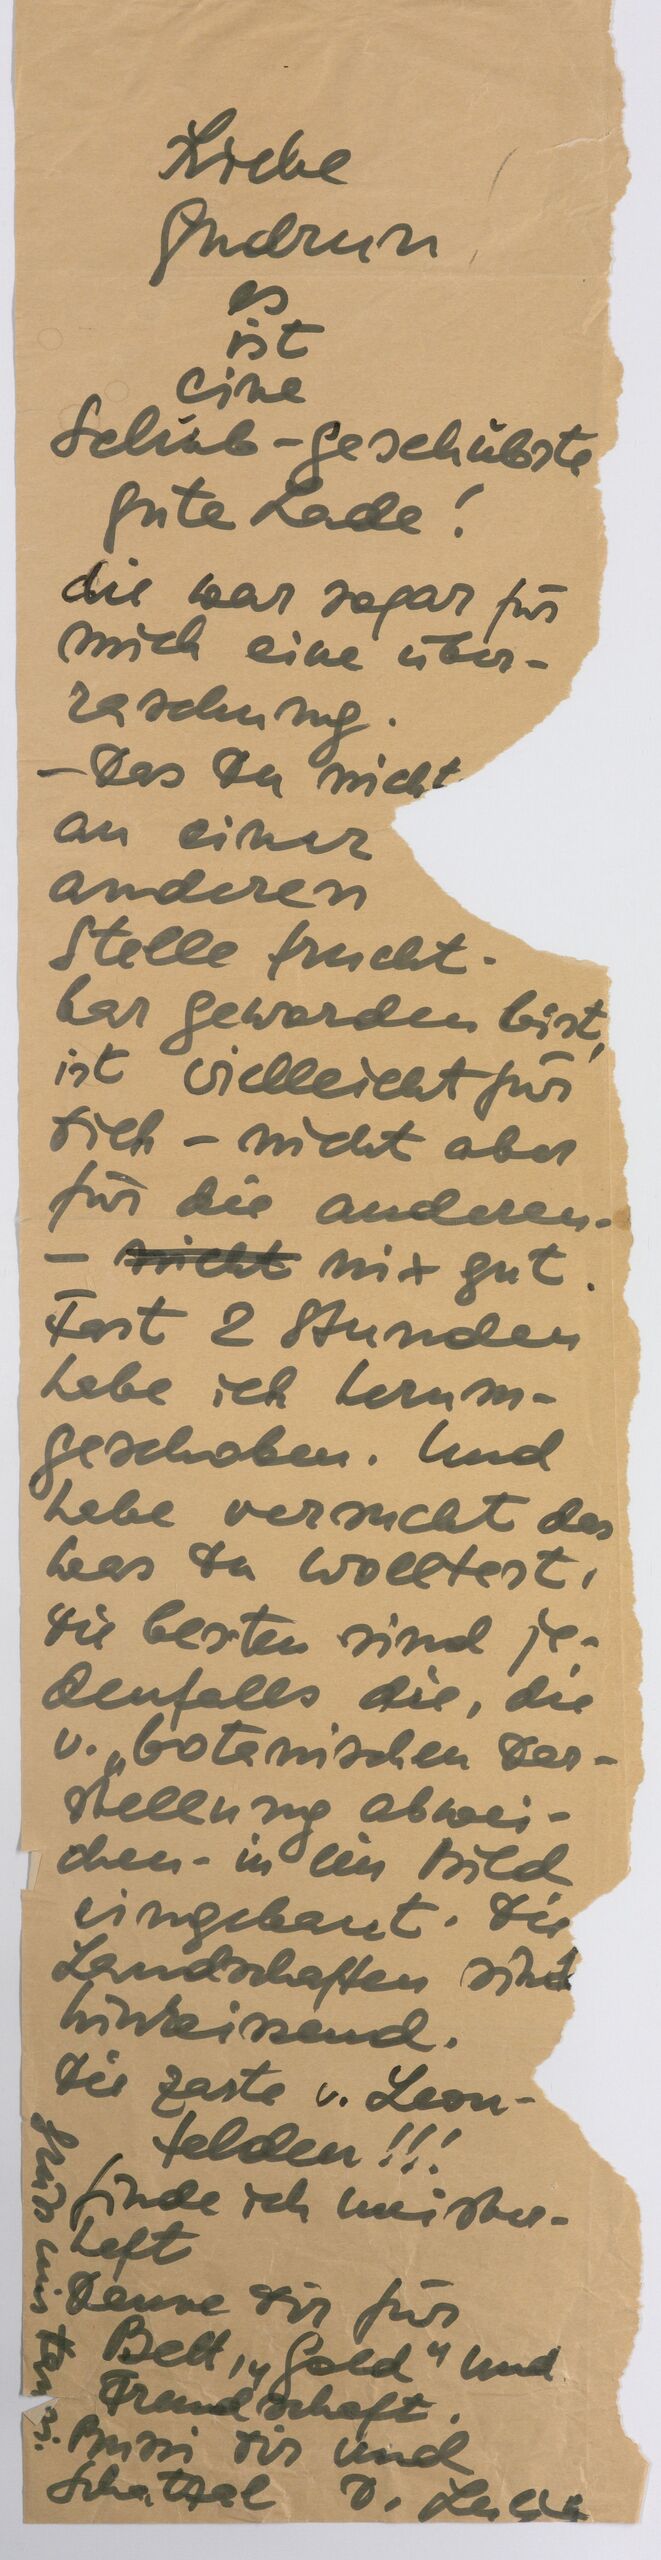 Liebe
Gudrun
es
ist
eine
Schub-geschübste
gute Lade!
die war sogar für
mich eine über-
raschung.
- Das Du nicht
an einer
anderen
Stelle frucht-
bar geworden bist,
ist vielleicht für
Dich - nicht aber
für die anderen.
- nicht nix gut.
Fast 2 Stunden
habe ich herum-
geschoben. Und
habe versucht das
was Du wolltest.
Die besten sind je-
denfalls die, die
v. „botanischen Dar-
stellung abwei-
chen - in ein Bild
eingebaut. Die
Landschaften sind
hinweisend.
Die zarte v. Leon-
felden!!!
finde ich meister-
haft
Danke Dir für
Bett, „Gold" und
Freundschaft.
Bussi Dir und
Schatzal D.